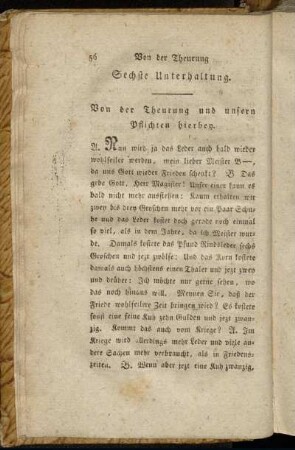 56 Von der Theurung
Sechste Unterhaltung.
Von der Theurung und unsern
Pflichten hierbey.
A. Nun wird ja das Leder auch bald wieder
wohlfeiler werden, mein lieber Meister B—,
da uns Gott wieder Frieden schenkt? B. Das
gebe Gott, Herr Magister! Unser einer kann es
bald nicht mehr ausstehen: Kaum erhalten wir
zwey bis drey Groschen mehr vor ein Paar Schu-
he und das Leder kostet doch gerade noch einmal
so viel, als in dem Jahre, da ich Meister wur-
de. Damals kostete das Pfund Rindsleder sechs
Groschen und jezt zwölfe: Und das Korn kostete
damals auch höchstens einen Thaler und jezt zwey
und drüber: Ich möchte nur gerne sehen, wo
das noch hinaus will. Meynen Sie, daß der
Friede wohlfeilere Zeit bringen wird? Es kostete
sonst eine feine Kuh zehn Gulden und jezt zwan-
zig. Kommt das auch vom Kriege? A. Im
Kriege wird allerdings mehr Leder und viele an-
dere Sachen mehr verbraucht, als in Friedens-
zeiten. B. Wenn aber jezt eine Kuh zwanzig,